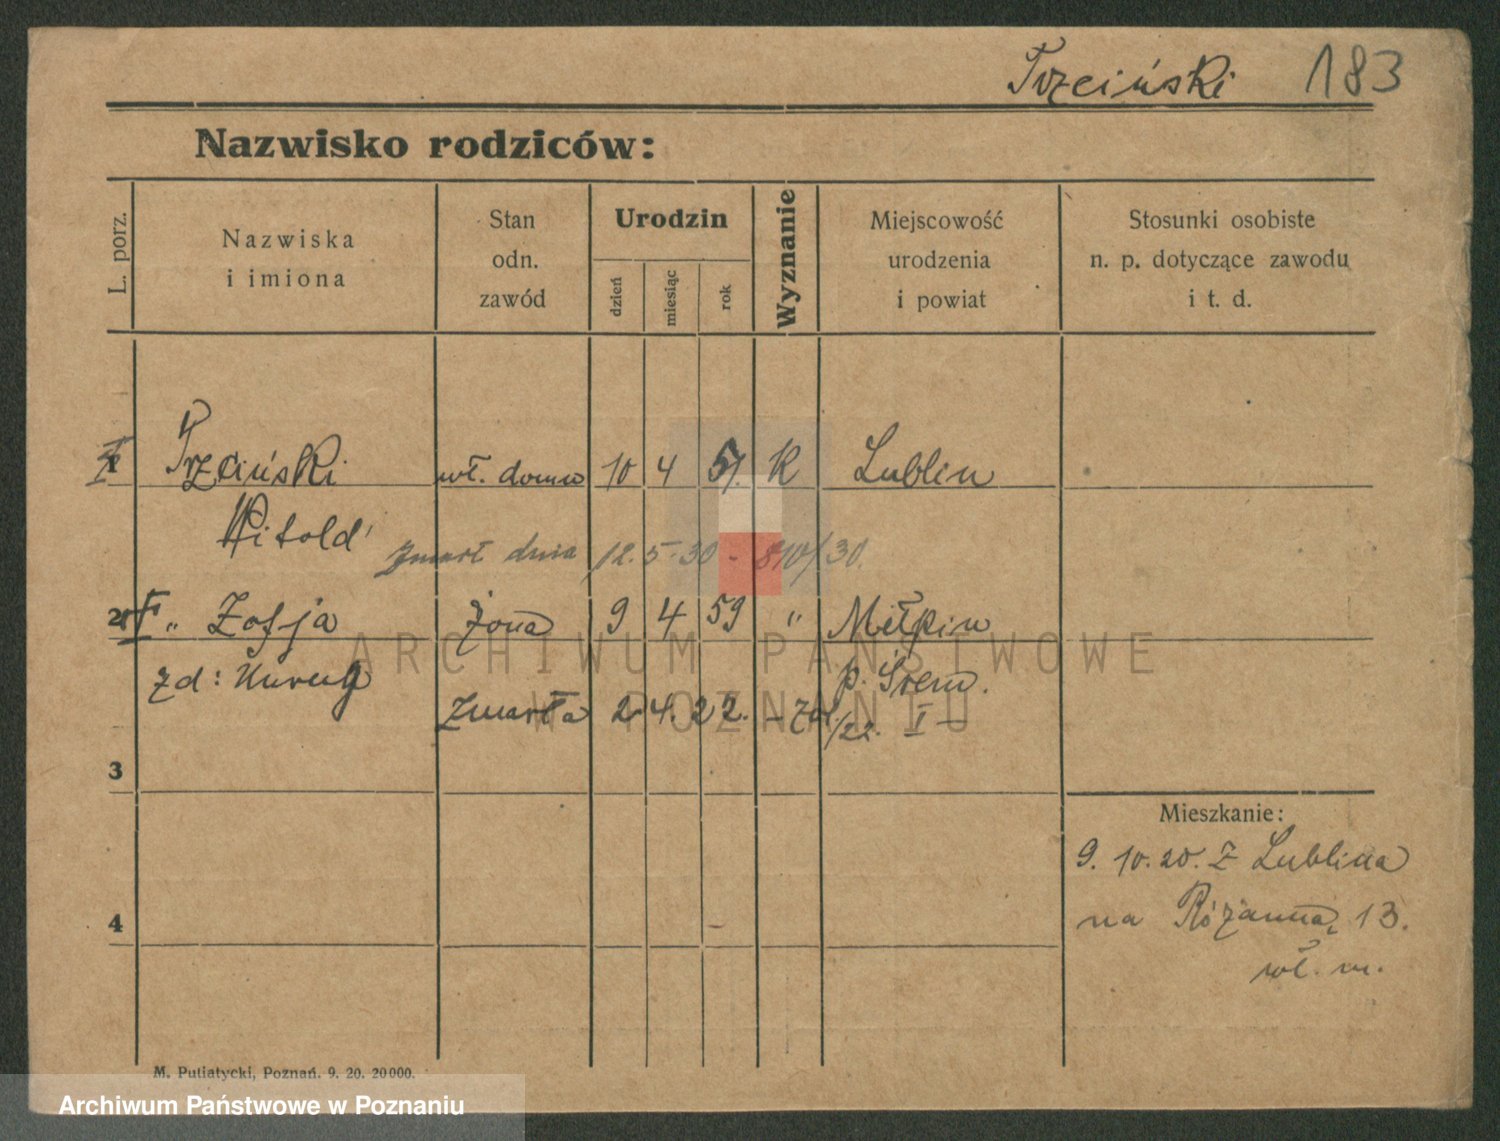 Trzciński 183
Nazwisko rodziców:
L. porz.
Nazwiska
i imiona
Stan
odn.
zawód
Urodzin
dzień
miesiąc
rok
Wyznanie
Miejscowość
urodzenia
i powiat
Stosunki osobiste
n. p. dotyczące zawodu
i t. d.
I 1 Trzciński wł. domu 10 4 51. K Lublin
Witold
zmarł dnia 12.5.30 - 810/30.
2 „ Zofja żona 9 4 59 „ Mełpin
zd: p. Śrem.
zmarła 2. 4. 22. /22. I –
3
Mieszkanie:
9. 10. 20. Z Lublina
4
na Różanną 13.
wł. m.
M. Putiatycki, Poznań. 9. 20. 20000.
ARCHIWUM PAŃSTWOWE
W POZNANIU
Archiwum Państwowe w Poznaniu